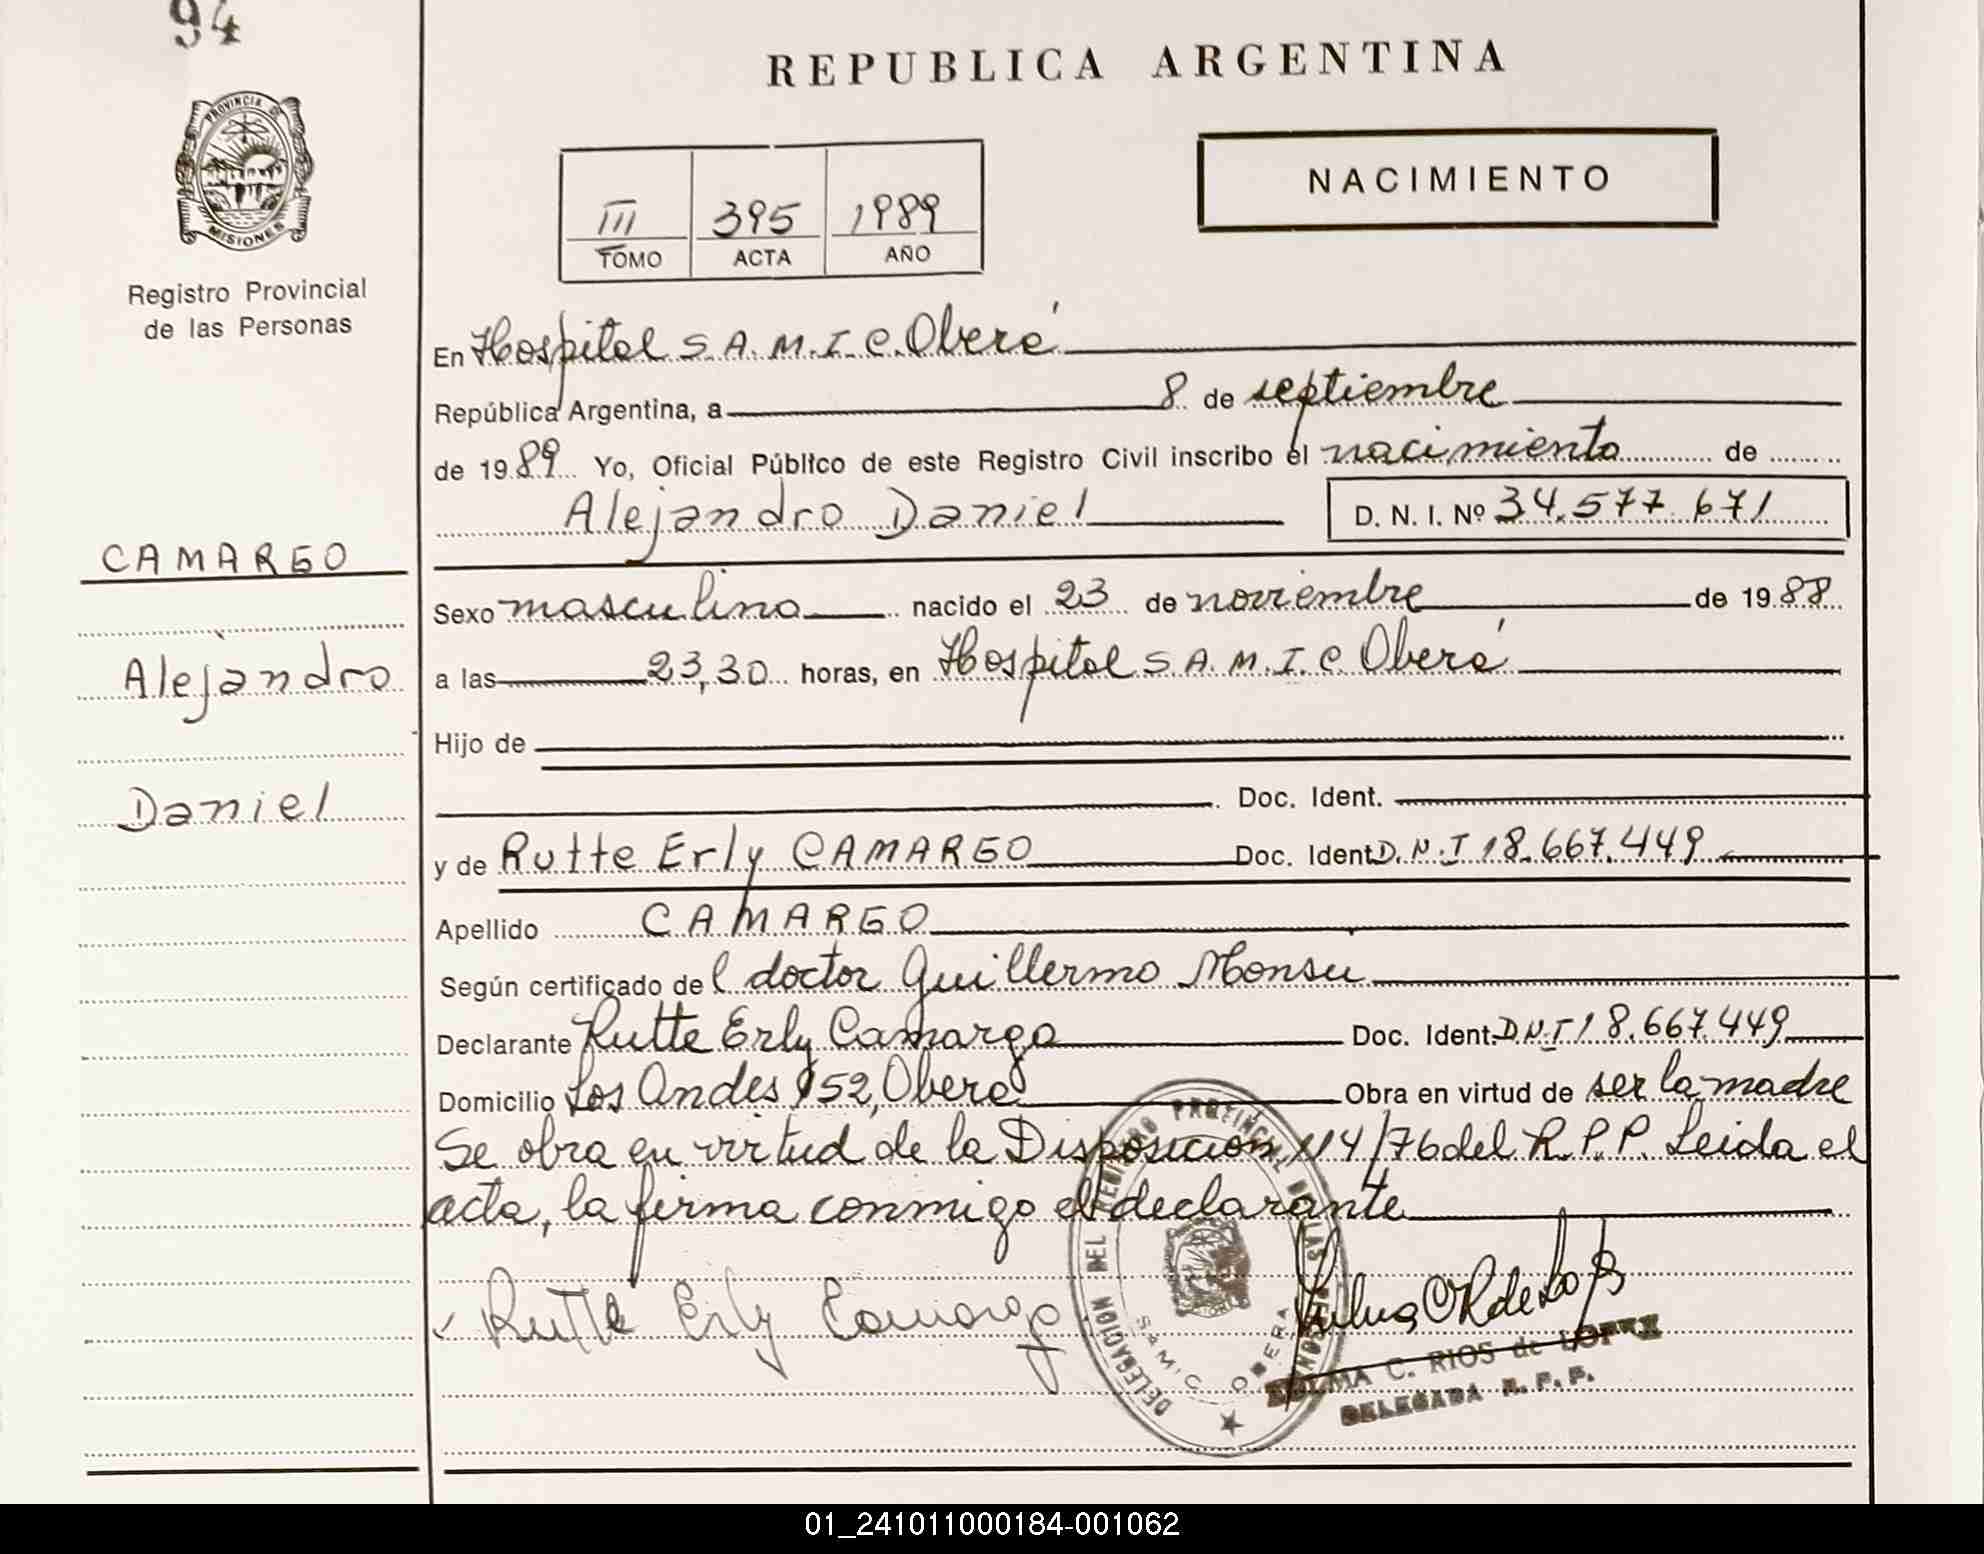 94
REPUBLICA ARGENTINA
PROVINCIA DE
MISIONES
Registro Provincial
de las Personas
III 395 1989
TOMO ACTA AÑO
NACIMIENTO
En Hospital S.A.M.I.C. Oberá
República Argentina, a 8 de septiembre
de 1989 Yo, Oficial Público de este Registro Civil inscribo el nacimiento de
Alejandro Daniel D. N. I. Nº 34.577.671
CAMARGO
Sexo masculino nacido el 23 de noviembre de 1988
Alejandro
a las 23,30 horas, en Hospital S.A.M.I.C. Oberá
Hijo de
Daniel
Doc. Ident.
y de Rutte Erly CAMARGO Doc. Ident. D.N.I 18.667.449
Apellido CAMARGO
Según certificado del doctor Guillermo Monsu
Declarante Rutte Erly Camargo Doc. Ident. D.N.I 18.667.449
Domicilio Los Andes 152, Oberá Obra en virtud de ser la madre
Se obra en virtud de la Disposición 114/76 del R.P.P. Leida el
acta, la firma conmigo el declarante
Rutte Erly Camargo
DELEGACION DEL REGISTRO PROVINCIAL DE LAS PERSONAS
SAMIC OBERA
C. RIOS de LOPEZ
DELEGADA R.P.P.
01_241011000184-001062